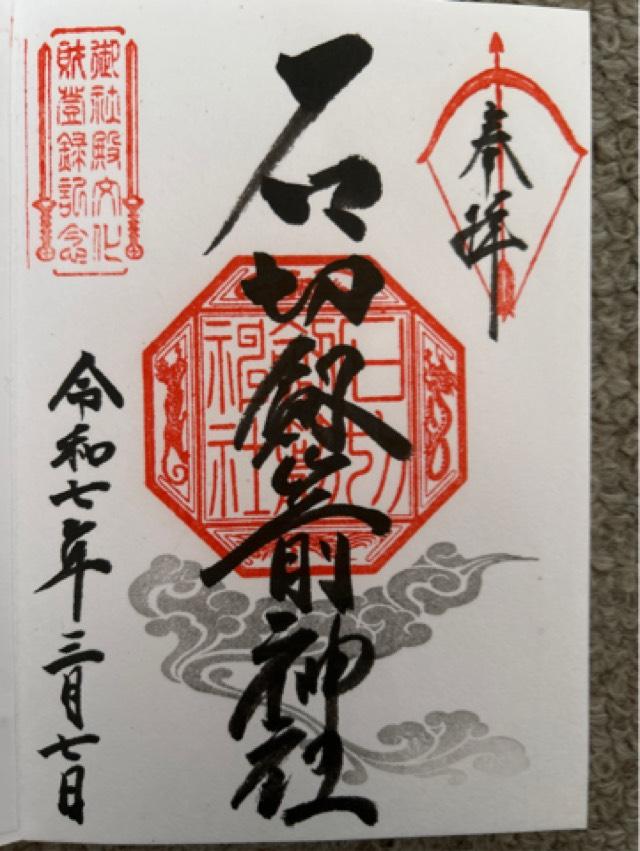 奉拝
石切劔箭神社
石切劔箭神社
御社殿文化
財登録記念
令和七年三月七日